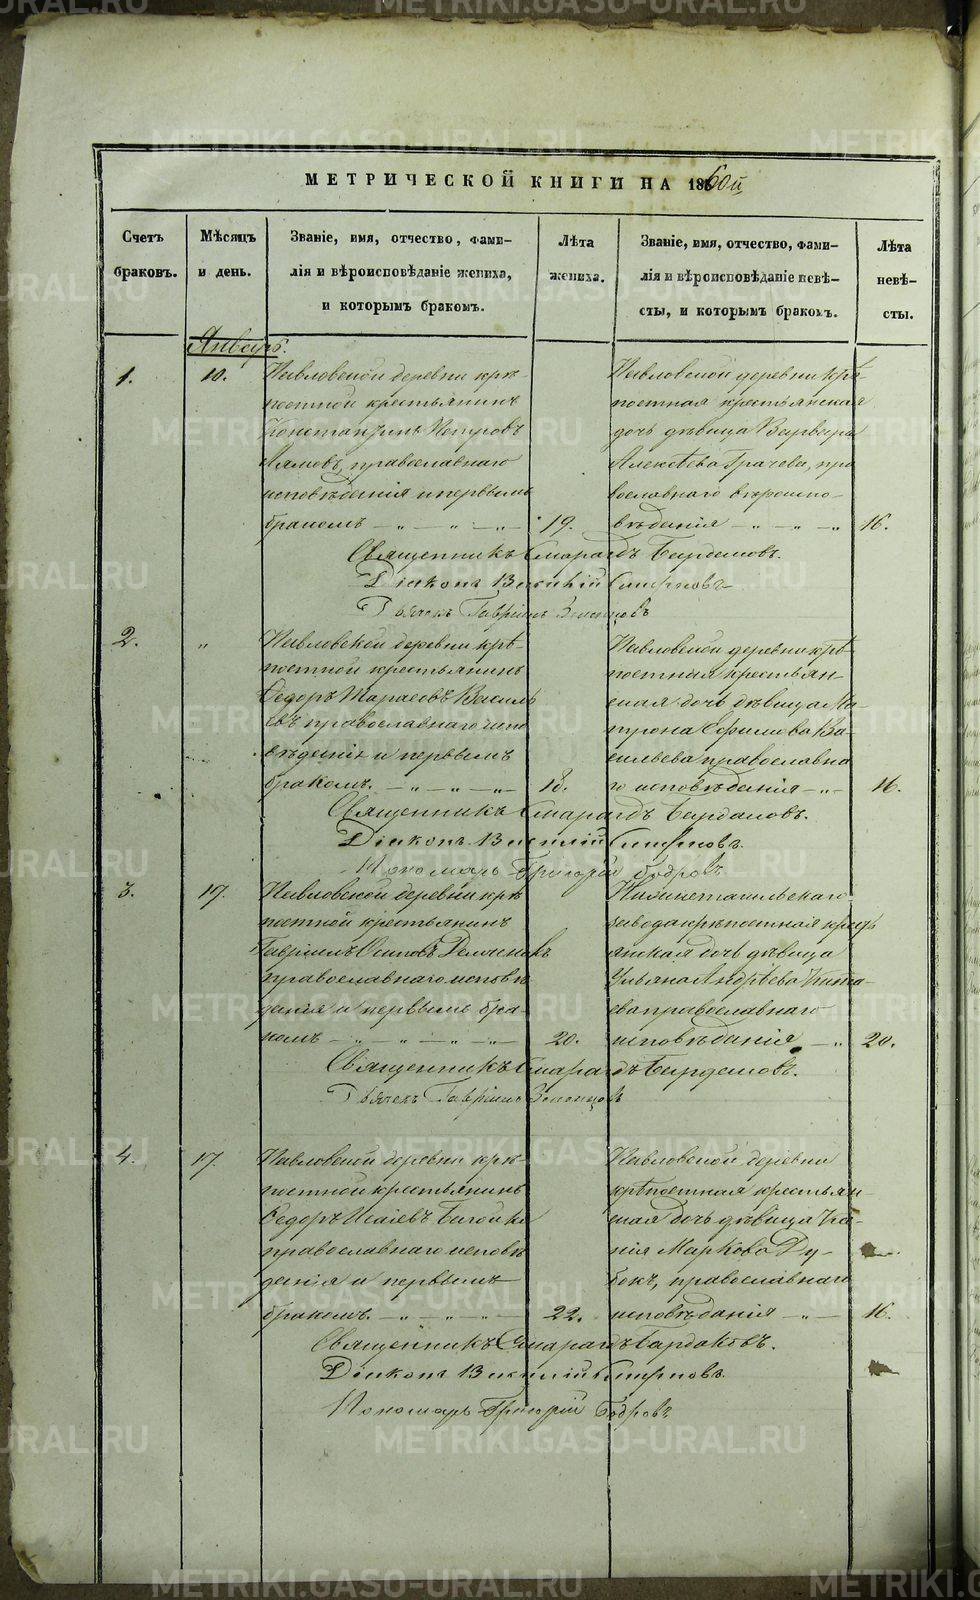 МЕТРИЧЕСКОЙ КНИГИ НА 1860й
Счетъ браковъ.
Мѣсяцъ и день.
Званіе, имя, отчество, фами-
лія и вѣроисповѣданіе жениха,
и которымъ бракомъ.
Лѣта жениха.
Званіе, имя, отчество, фами-
лія и вѣроисповѣданіе невѣ-
сты, и которымъ бракомъ.
Лѣта невѣ-
сты.
Январь.
1.
10.
Павловской деревни крѣ-
постной крестьянинъ
Константинъ Петровъ
православнаго
исповѣданія и первымъ
бракомъ
19.
Павловской деревни крѣ-
постная крестьянская
дочь дѣвица Варвара
Алексѣева Грачева, пра
вославнаго вѣроиспо-
вѣданія
16.
Священникъ Смарагдъ
Діаконъ Василій Смирновъ
Дьячекъ Гавріилъ
2.
"
Павловской деревни крѣ-
постной крестьянинъ
Ѳедоръ Тарасовъ Василь
евъ православнаго испо
вѣданія и первымъ
бракомъ.
18.
Павловской деревни крѣ-
постная крестьян-
ская дочь дѣвица Ма-
трона Ефимова Ва-
сильева православна
го исповѣданія
16.
Священникъ Смарагдъ
Діаконъ Василій Смирновъ
Пономарь Григорій Бобровъ
3.
17.
Павловской деревни крѣ
постной крестьянинъ
Гавріилъ Осиповъ
православнаго исповѣ
данія и первымъ бра-
комъ
20.
Нижнетагильскаго
завода крѣпостная крест
янская дочь дѣвица
Ульяна Андрѣева
ева православнаго
исповѣданія
20.
Священникъ Смарагдъ
Дьячекъ Гавріилъ
4.
17.
Павловской деревни крѣ-
постной крестьянинъ
Ѳедоръ Исаіевъ
православнаго исповѣ
данія и первымъ
бракомъ.
22.
Павловской деревни
крѣпостная крестьян-
ская дочь дѣвица
Маркова Ду-
бокъ, православнаго
исповѣданія
16.
Священникъ Смарагдъ
Діаконъ Василій Смирновъ
Пономарь Григорій Бобровъ
METRIKI.GASO-URAL.RU